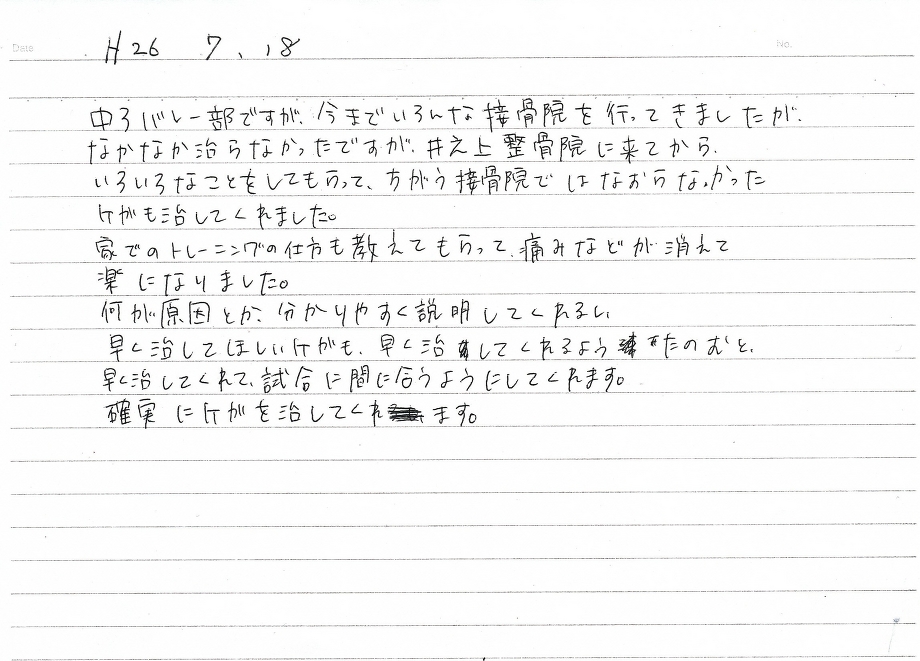 Date H26 7、18 No.
中3バレー部ですが、今までいろんな接骨院を行ってきましたが、
なかなか治らなかったですが、井之上整骨院に来てから、
いろいろなことをしてもらって、ちがう接骨院ではなおらなかった
ケガも治してくれました。
家でのトレーニングの仕方も教えてもらって、痛みなどが消えて
楽になりました。
何が原因とか、分かりやすく説明してくれるし、
早く治してほしいケガも、早く治してくれるようたのむと、
早く治してくれて、試合に間に合うようにしてくれます。
確実にケガを治してくれます。